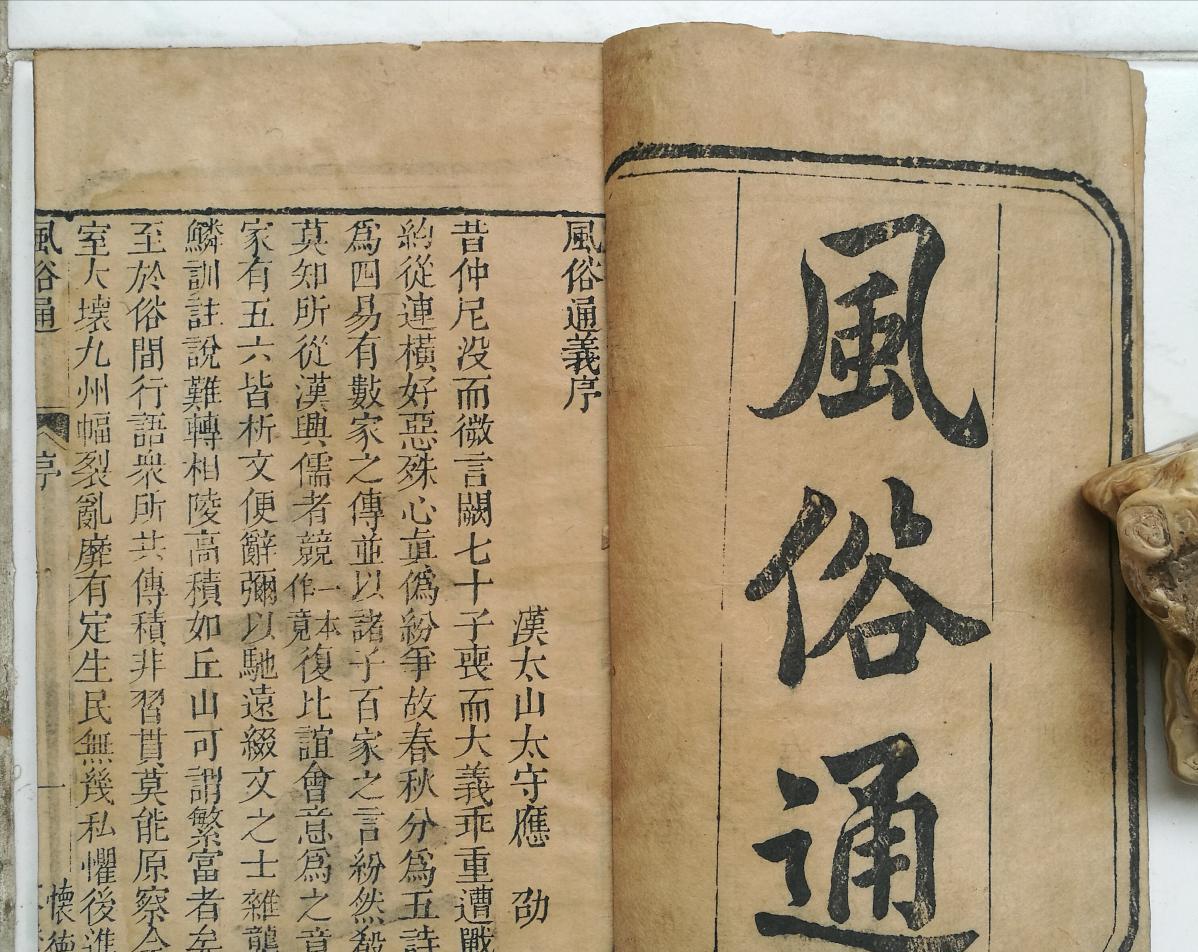 風俗通
風俗通義序
漢太山太守應劭
昔仲尼没而微言闕七十子喪而大義乖重遭戰
約從連橫好惡殊心眞僞紛爭故春秋分爲五詩
爲四易有數家之傳並以諸子百家之言紛然殽
莫知所從漢興儒者競一本作竟復比誼會意爲之章
家有五六皆析文便辭彌以馳遠綴文之士雜龍
鱗訓註說難轉相陵高積如丘山可謂繁富者矣
至於俗間行語衆所共傳積非習貫莫能原察今
室大壊九州幅裂亂靡有定生民無幾私懼後進
風俗通
序
一
懷德